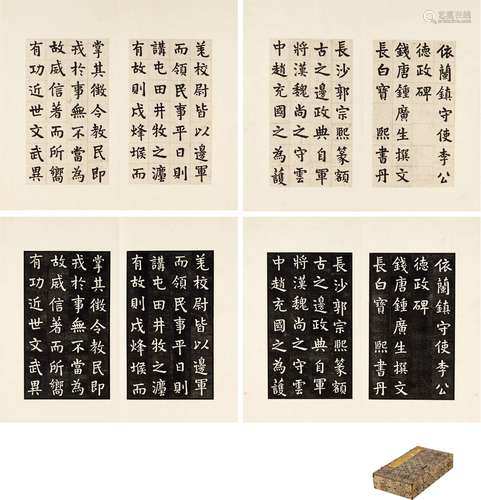 依蘭鎮守使李公
德政碑
錢唐鍾廣生撰文
長白寶熙書丹
長沙郭宗熙篆額
古之邊政典自軍
將漢魏尚之守雲
中趙充國之為護
羌校尉皆以邊軍
而領民事平日則
講屯田井牧之灋
有故則戍烽堠而
掌其徵令教民即
戎於事無不當為
故威信著而所嚮
有功近世文武異
依蘭鎮守使李公
德政碑
錢唐鍾廣生撰文
長白寶熙書丹
長沙郭宗熙篆額
古之邊政典自軍
將漢魏尚之守雲
中趙充國之為護
羌校尉皆以邊軍
而領民事平日則
講屯田井牧之灋
有故則戍烽堠而
掌其徵令教民即
戎於事無不當為
故威信著而所嚮
有功近世文武異